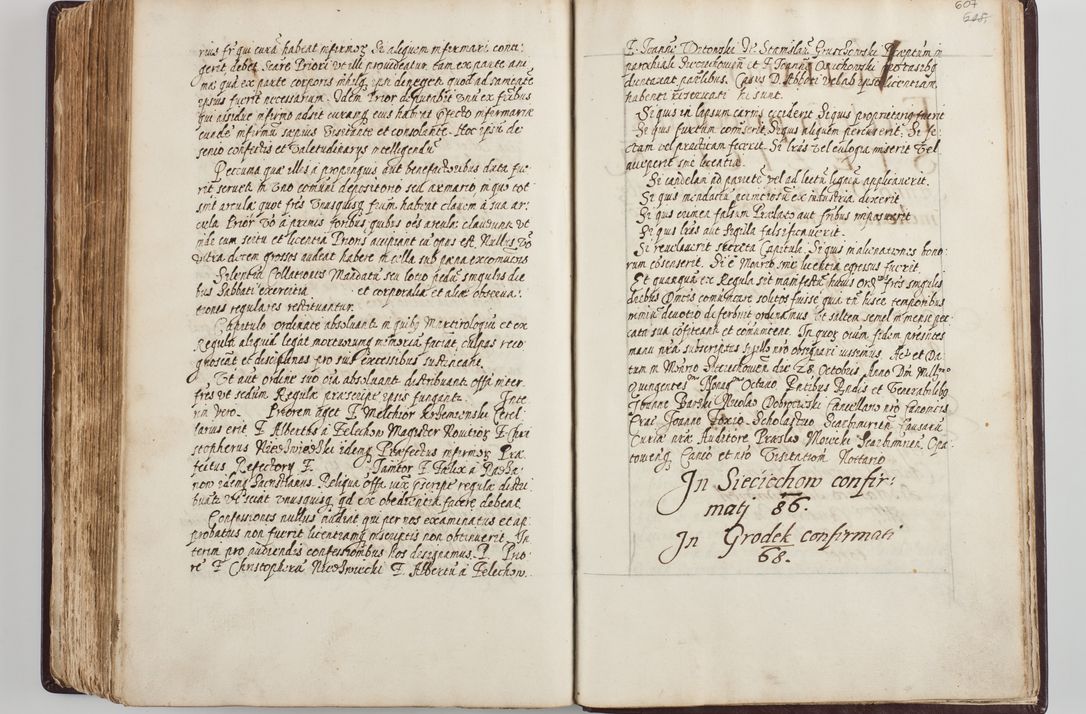 rius fr qui curã habeat infirmoɀ Si aliquem infirmari conti-
gerit debet scare Priori ut illi provideatur tam ex parte ani
mæ quã ex parte corporis nihilq ipsi deneget quod ad sanitatẽ
ipsius fuerit necessarium. Idem Prior deputabit unũ ex fribus
qui assidue infirmo adsit curamq eius habeat Pfecto infirmariæ
eundẽ infirmũ sæpius visitante et consolante. Hoc ipsũ de
senio confectis et valetudinarys intelligendũ
Peccunia quæ illis à propinquis aut benefactoribus data fue
rit servetr in uno comuni depositorio seu armario in quo tot
sint arculæ quot frẽs Unusquisq suũm habeat clavem à suã ar
cula Prior vo à primis foribus quibus oẽs arculæ clauduntr ut
inde cum scitu et licentia Prioris accipiant cũ opus est Nullus vo
ultra decem grossos audeat habere in cella sub pæna excomunicõis
Silentiũ Collationes Mandatũ seu lotio pedũ singulis die
bus Sabbati exercitia et corporalia et aliæ observa-
tiones regulares restituantur.
Capitulo ordinate absoluantr in quibq Martirologiũ et ex
Regula aliquid legatr mortuorũq memoria faciat, culpas reco
gnoscant et disciplinas pro suis excessibus sustineant.
Ut aut ordine suo oĩa absoluant distribuantr offã inter
frẽs ut sedũm Regulæ præscripr ipsis fungantr. Inte
rim vero Priorem aget F Melchior Krzemienski Cerel
larius erit F Albertus à Zelechow Magister Novitioɀ F Chri
stopherus Niedzwiedzki idemq Præfectus infirmoɀ Præ
fectus Refectory F. Cantor F Felix à
nom idemq Sacristianus. Reliqua offã iuxta pscriptr regulæ distri
buantr ut sciat unusquisq qd ex obedientia facere debeat
Confessiones nullus audiat qui per nos examinatus et ap:
probatus non fuerit licentiamq in scriptis non obtinuerit. In
terim pro audiendis confessionibus Nos designamus P. Prio-
rẽ F Christopherũ Niedzwiecki F. Albertũ à Zelechow.
607
F. Joannẽ Stanislaũ Gruszczenski
parochiali Sieciechoviẽn et F Joannẽ
duntaxat partibus. Casus D. Abbati vel ab ipso licentiam
habenti reservati hi sunt.
Si quis in lapsum carnis ceciderit Si quis proprietariq fuerit
Si quis furtum comiserit, Si quis aliquem percusserit, Si se-
ctam vel practicam fecerit. Si lrãs vel eulogia miserit vel
acceperit sine licentia.
Si candelam ad parietẽ vel ad lectũ ligneũ applicauerit.
Si quis mendaciũ perniciosũ ex industria dixerit
Si quis crimen falsum Prælato aut fribus imposuerit
Si quis lrãs aut sigilla falsificauerit.
Si revelauerit secreta Capituli. Si quis in alienationẽ bono-
rum cõsenserit. Si è Monrio sine licentia egressus fuerit.
Et quanquã ex Regula sit manifestũ huius ordĩs frẽs singulis
diebus Dnicis comunicare solitos fuisse quia tñ hisce temporibus
nimiũ devotio deferbuit ordinamus ut saltem semel in mense pec
cata sua cõfiteantr et comunicent. In quoɀ oium fidem presentes
manu nrã subscriptas sigillo nrõ obsignari iussimus Act et Da
tum in Monrio Sieciechoviẽn die 28 Octobris Anno Dni Millmo
Quingentesmo Nonagmo Octavo Pñtibus Rndis et Venerabilibq
Joanne Barski Nicolao Dobrocieski Cancellario nrõ Canonicis
Crac Joanne Foxio Scholastico Scarbimirien Causarũ
Curiæ nrae Auditore Præslao Moiecki Scarbimirien Opa
toviẽnq Canco et nrõ Visitationis Nottario
In Sieciechow confir:
mati 86.
In Grodek confirmati
68.